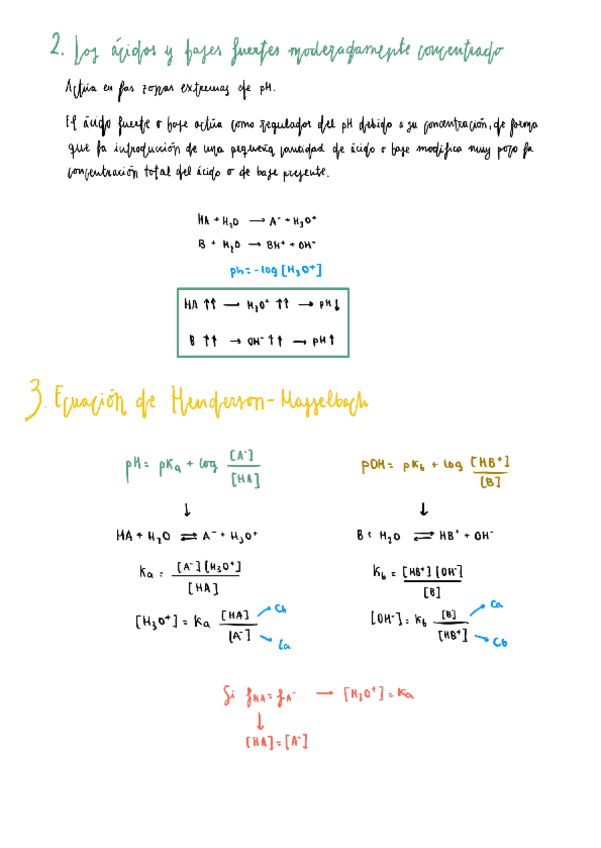 2. Los ácidos y bases fuertes moderadamente concentrado
Actúa en las zonas extremas de pH.
El ácido fuerte o base actúa como regulador del pH debido a su concentración, de forma
que la introducción de una pequeña cantidad de ácido o base modifica muy poco la
concentración total del ácido o de base presente.
HA + H₂O → A⁻ + H₃O⁺
B + H₂O → BH⁺ + OH⁻
ph = -log [H₃O⁺]
HA ↑↑ → H₃O⁺ ↑↑ → pH↓
B ↑↑ → OH⁻ ↑↑ → pH↑
3. Ecuación de Henderson-Hasselbach
pH = pKa + log [A⁻] / [HA]
pOH = pKb + log [HB⁺] / [B]
↓ ↓
HA + H₂O ⇌ A⁻ + H₃O⁺
B + H₂O ⇌ HB⁺ + OH⁻
Ka = [A⁻][H₃O⁺] / [HA]
Kb = [HB⁺][OH⁻] / [B]
[H₃O⁺] = Ka [HA] / [A⁻] Cb Ca
[OH⁻] = Kb [B] / [HB⁺] Ca Cb
Si fHA = fA⁻ → [H₃O⁺] = Ka
↓
[HA] = [A⁻]